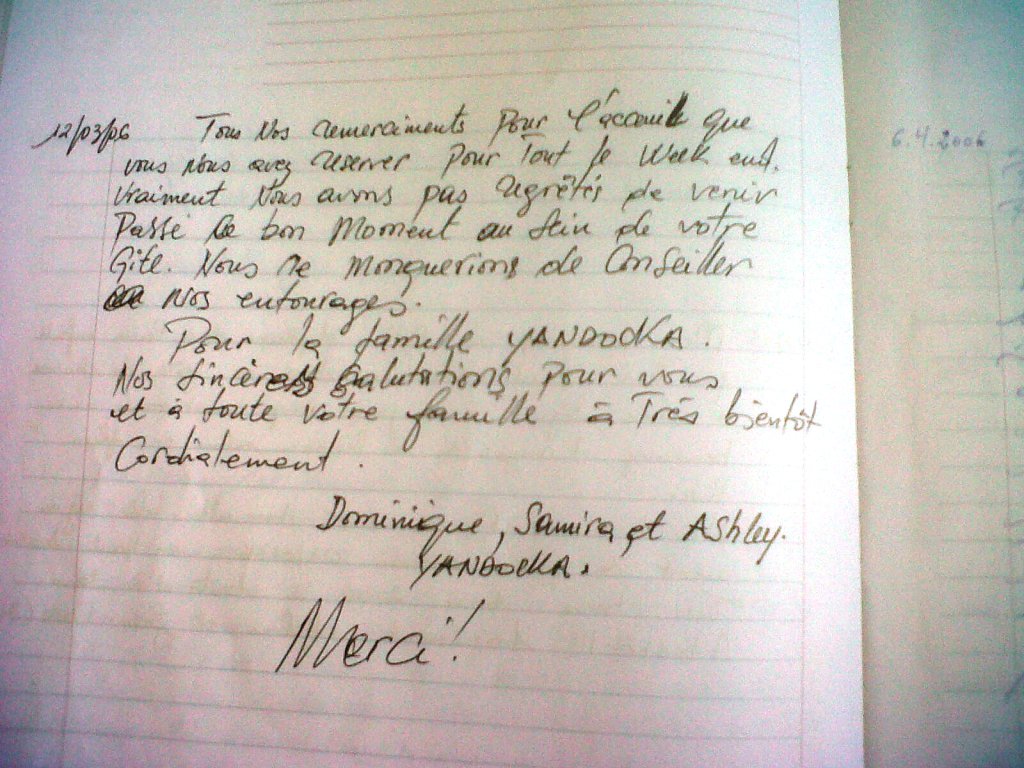 12/03/06 Tous Nos remerciments pour l'accueil que
vous nous avez reserver pour Tout le Week end,
vraiment Nous avons pas regrêtés de venir
Passé le bon Moment au sein de votre
Gite. Nous ne manquerions de Conseiller
Nos entourages.
Pour la famille YANDOCKA.
Nos sincères salutations pour vous
et à toute votre famille à Très bientôt
Cordialement.
Dominique, Samira et Ashley.
YANDOCKA.
Merci!
6.4.2006